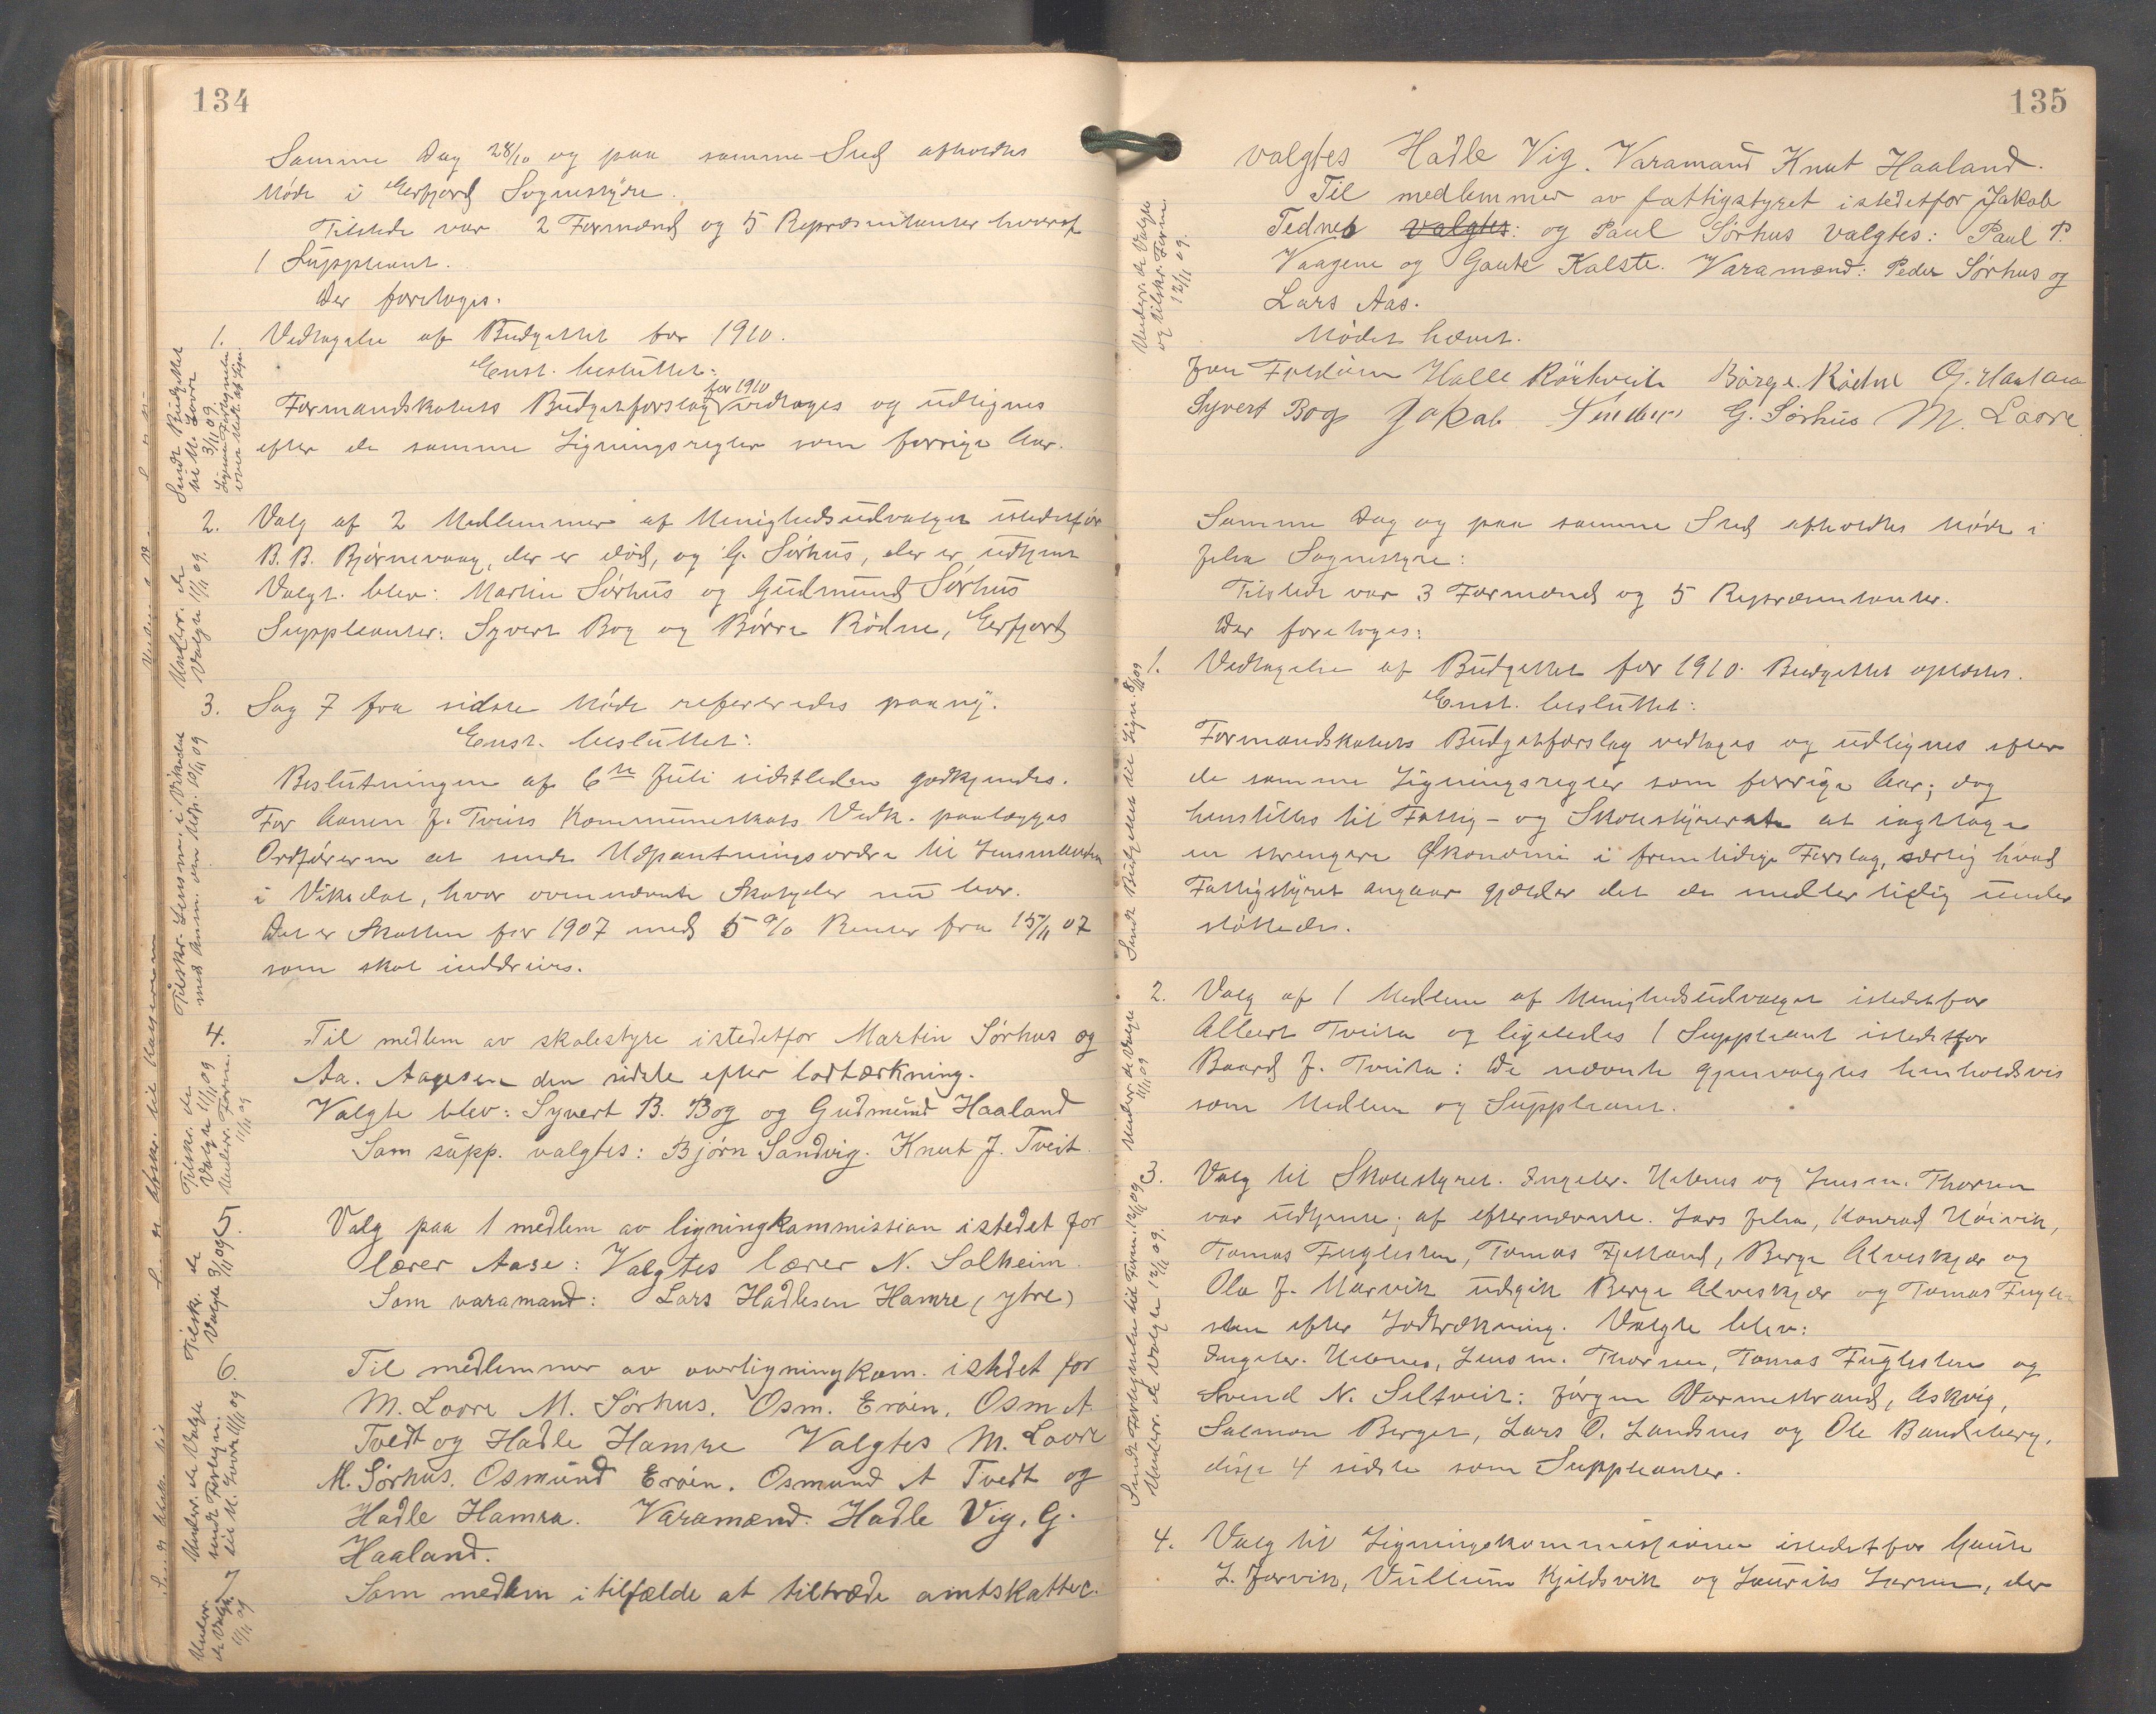 134
Samme Dag 28/10 og paa samme Sted afholdtes
Møde i Gerfjord Sognestyre.
Tilstede var 2 Formænd og 5 Repræsentanter hvoraf
1 Suppleant.
Der foretoges.
1. Vedtagelse af Budgettet for 1910.
Enst. besluttet:
Formandskabets Budgetforslag for 1910 vedtages og udlignes
efter de samme Ligningsregler som forrige Aar.
Sendt Budgettet
til M. Lovre
3/11 09.
2. Valg af 2 Medlemmer af Menighedsudvalget istedetfor
B. B. Bjørnevaag, der er død, og G. Sørhus, der er udtjent
Valgt blev: Martin Sørhus og Gudmund Sørhus
Suppleanter: Syvert Bog og Børre Rødne, Gerfjord
Underr. de
Valgte 11/11 09.
3. Sag 7 fra sidste Møde refereredes paany.
Enst. besluttet:
Beslutningen af 6te Juli sidstleden godkjendes.
For Aanen J. Tveits Kommuneskats Vedk. paalægges
Ordføreren at sende Udpantningsordre til Lensmanden
i Vikedal, hvor ovennævnte Skatyder nu bor.
Det er Skatten for 1907 med 5 % Renter fra 15/11 07
som skal inddrives.
Tilskr. Lensm. i Vikedal
med Anm. om Udp. 10/11 09
4. Til medlem av skolestyre istedetfor Martin Sørhus og
Aa. Aagesen den sidste efter lodtrækning.
Valgte blev: Syvert B. Bog og Gudmund Haaland
Som supp. valgtes: Bjørn Sandvig. Knut J. Tveit.
Tilskr. de
Valgte 11/11 09
Underr. Form.
11/11 09
5. Valg paa 1 medlem av ligningkommission istedet for
lærer Aase: Valgtes lærer N. Solheim.
Som varamand: Lars Hadlesen Hamre (ytre)
Tilsk. de
Valgte 9/11 09
6. Til medlemmer av overligningkom. istedet for
M. Lovre M. Sørhus. Osm. Erøin. Osm A
Tvedt og Hadle Hamre Valgtes M. Lovre
M. Sørhus. Osmund Erøen. Osmund A Tvedt og
Hadle Hamra. Varamænd. Hadle Vig. G.
Haaland.
Underr. de Valgte
sendt Fortegn.
til M. Lovre 11/11 09
7 Som medlem i tilfælde at tiltræde amtskattec.
Underr.
de Valgt.
11/11 09
135
valgtes Hadle Vig. Varamand Knut Haaland.
Til medlemmer av fattigstyret istedetfor Jakob
Tednes valgtes: og Paul Sørhus valgtes: Paul P.
Vaagene og Gaute Kalste. Varamænd: Peder Sørhus og
Lars Aas.
Mødet hævet.
Underr. de Valgte
og tilskr. Form
12/11 09.
Halle Rörkveit Børge Rødne G. Haaland
Syvert Bog Jakob G. Sørhus M. Lovre
Samme Dag og paa samme Sted afholdtes Møde i
Jelsa Sognestyre:
Tilstede var 3 Formænd og 5 Repræsentanter.
Der foretoges:
1. Vedtagelse af Budgettet for 1910. Budgettet oplæstes.
Enst. besluttet:
Formandskabets Budgetforslag vedtages og udlignes efter
de samme Ligningsregler som forrige Aar; dog
henstilles til Fattig- og Skolestyrerne at iagttage
en strengere Økonomi i fremtidige Forslag, særlig hvad
Fattigstyret angaar gjælder det de midlertidig under
støttede.
Sendt Budgettet til Lign. 8/11 09
2. Valg af 1 Medlem af Menighedsudvalget istedetfor
Albert Tveita og ligeledes 1 Suppleant istedetfor
Baard J. Tveita: De nævnte gjenvalgtes henholdsvis
som Medlem og Suppleant.
Underr. de Valgte
11/11 09
3. Valg til Skolestyret. Ingebr. Hebnes og Lensm. Thorsen
var udtjente; af efternævnte. Lars Jelsa, Konrad Høivik,
Tomas Fuglesten, Tomas Fjelland, Berge Alveskjær og
Ola J. Marvik udgik Berge Alveskjær og Tomas Fugle-
sten efter Lodtrækning. Valgte blev:
Ingebr. Hebnes, Lensm. Thorsen, Tomas Fuglesten og
Svend N. Seltveit: Jørgen Varmestrand, Askvig,
Salmon Berget, Lars O. Landsnes og Ole Bandeberg,
disse 4 sidste som Suppleanter.
Sendt Fortegnelse til Form. 12/11 09
Underr. de Valgte 12/11 09.
4. Valg til Ligningskommissionen istedetfor Gaute
L. Jorvik, Vullum Kjeldsvik og Laurits Larsen, der